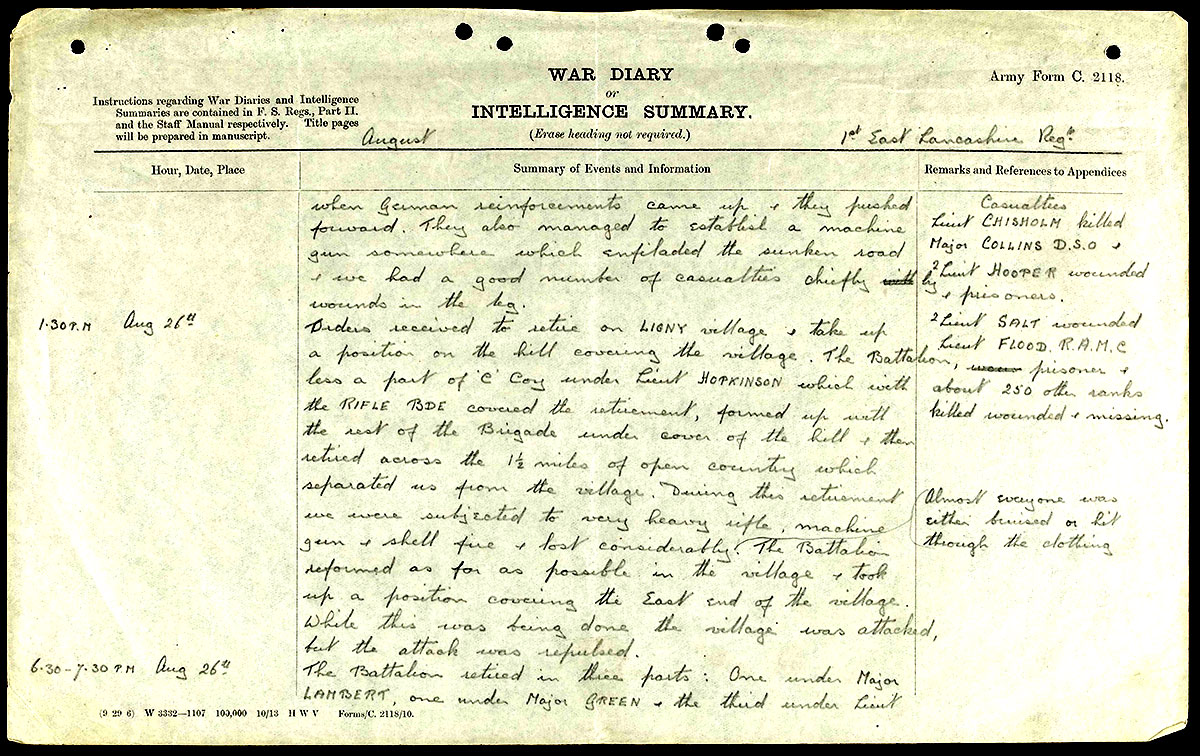 WAR DIARY
or
INTELLIGENCE SUMMARY.
(Erase heading not required.)
Army Form C. 2118.
Instructions regarding War Diaries and Intelligence
Summaries are contained in F. S. Regs., Part II.
and the Staff Manual respectively. Title pages
will be prepared in manuscript.
August
1st East Lancashire Regt.
Hour, Date, Place
Summary of Events and Information
Remarks and References to Appendices
when German reinforcements came up & they pushed
forward. They also managed to establish a machine
gun somewhere which enfiladed the sunken road
& we had a good number of casualties chiefly with by
wounds in the leg.
1.30 P.M Aug 26th
Orders received to retire on LIGNY village & take up
a position on the hill covering the village. The Battalion,
less a part of 'C' Coy under Lieut HOPKINSON which with
the RIFLE BDE covered the retirement, formed up with
the rest of the Brigade under cover of the hill & then
retired across the 1½ miles of open country which
separated us from the village. During this retirement
we were subjected to very heavy rifle, machine
gun & shell fire & lost considerably. The Battalion
reformed as far as possible in the village & took
up a position covering the East end of the village.
While this was being done the village was attacked,
but the attack was repulsed.
6.30-7.30 P.M Aug 26th
The Battalion retired in three parts: One under Major
LAMBERT, one under Major GREEN & the third under Lieut
Casualties
Lieut CHISHOLM killed
Major COLLINS D.S.O &
2Lieut HOOPER wounded
& prisoners.
2Lieut SALT wounded
Lieut FLOOD. R.A.M.C
prisoner &
about 250 other ranks
killed wounded & missing.
Almost everyone was
either bruised or hit
through the clothing
(9 29 6) W 3332—1107 100,000 10/13 H W V Forms/C. 2118/10.